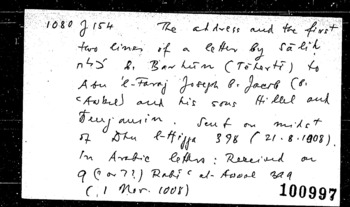 1080 J 154 The address and the first
two lines of a letter by Sāliḥ
b. Barhūn (Tāhertī) to
Abu 'l-Faraj Joseph b. Jacob (b.
'Awkal) and his sons Hillel and
Benjamin. Sent on midst
of Dhu l-Hijja 398 (21.8.1008).
In Arabic letters: Received on
9 (? or 7?) Rabī' al-Awwal 399
(. 1 Nov. 1008)
100997